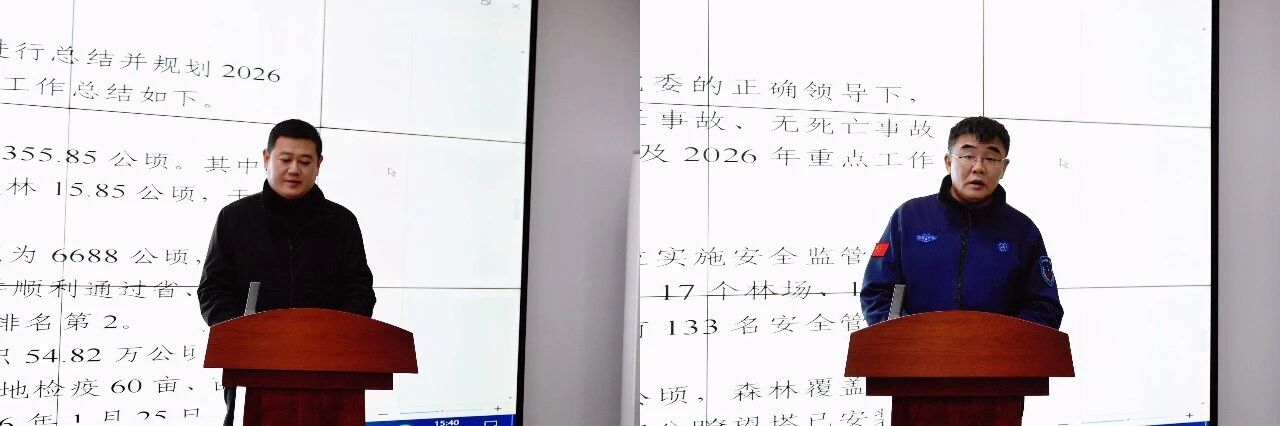 进行总结并规划 2026
工作总结如下。
355.85 公顷。其中
林 15.85 公顷,
为 6688 公顷,
顺利通过省、
排名第 2。
54.82 万公顷
地检疫 60 亩、
6 年 1 月 25 日
15:40
委的正确领导下,
事故、无死亡事故
及 2026 年重点工作
实施安全监管
17 个林场、
133 名安全管
公顷,森林覆盖
瞭望塔已安装